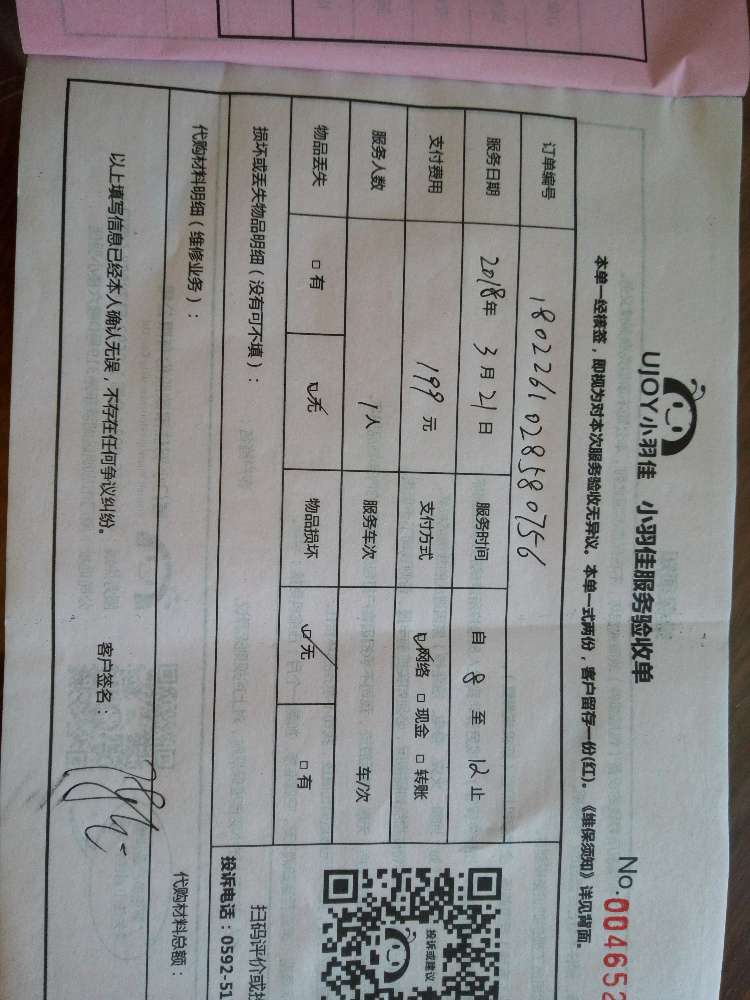 UJOY小羽佳 小羽佳服务验收单
No.004652
本单一经核签，即视为对本次服务验收无异议。本单一式两份，客户留存一份(红)。《维保须知》详见背面。
订单编号 1802261028580756
服务日期 2018年 3月 21日 服务时间 自 8 至 12 止
支付费用 199元 支付方式 网络 现金 转账
服务人数 1人 服务车次 车/次
物品丢失 有 无 物品损坏 无 有
损坏或丢失物品明细（没有可不填）：
代购材料明细（维修业务）：
代购材料总额：
以上填写信息已经本人确认无误，不存在任何争议纠纷。
客户签名：
投诉或建议
扫码评价或
投诉电话：0592-51